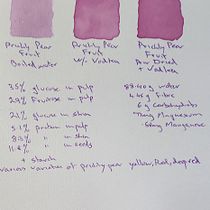 Prickly Pear
Fruit
Boiled water
Prickly Pear
Fruit
w/ Vodka
Prickly Pear
Fruit
Pear Dried
+ Vodka
35% glucose in pulp
29% Fructose in pulp
21% glucose in skin
5.1% protein in pulp
8.3% " in skin
11.8% " in seeds
+ starch
g water
g fibre
6 g Carbohydrates
Magnesium
Manganese
various varieties of prickly pear yellow, Red, deep red